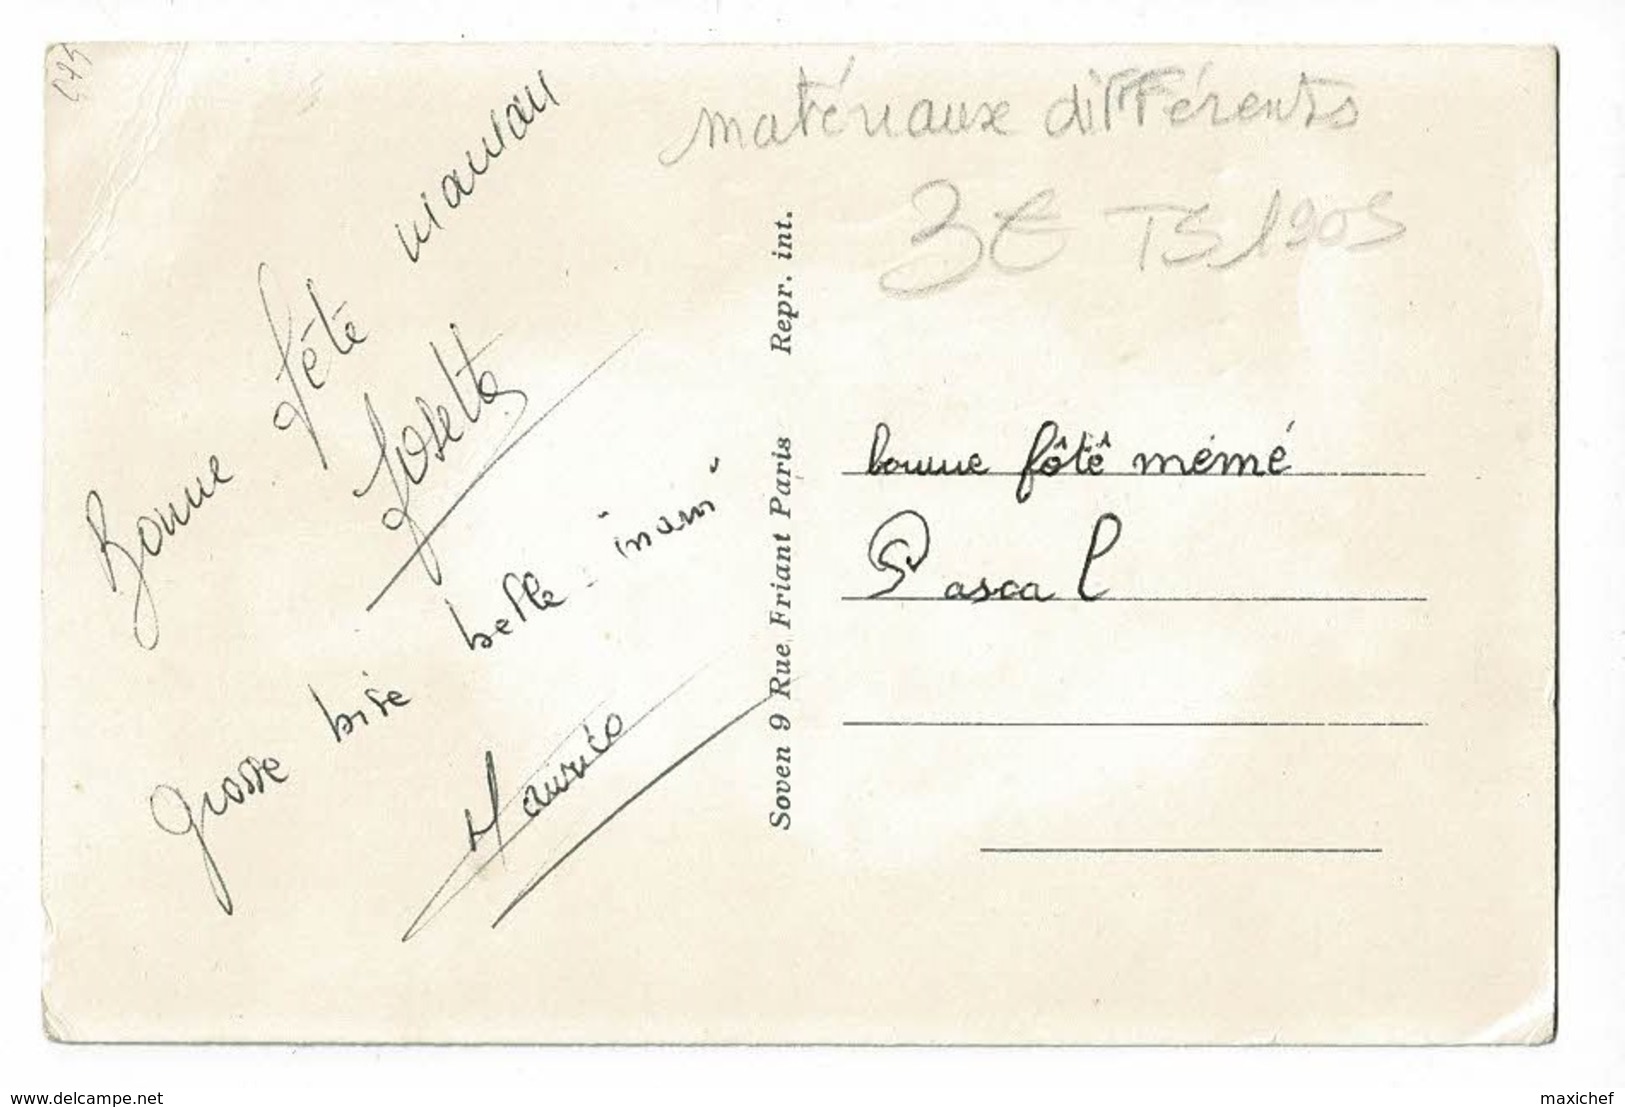 matériaux différents
3€ TS 1905
Bonne fête maman
Josette
grosse bise belle "mam"
Maurice
Soven 9 Rue Friant Paris Repr. int.
bonne fôtê mémé
Pascal
www.delcampe.net
maxichef